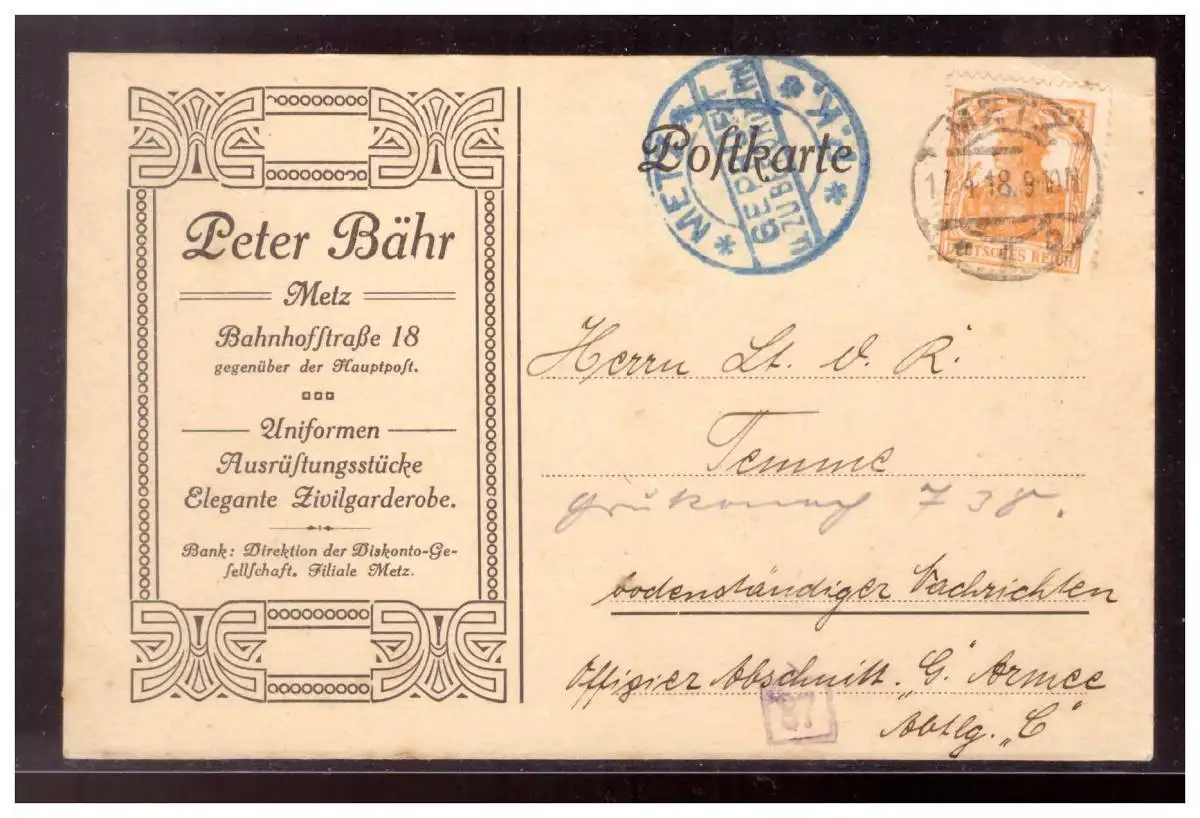 Peter Bähr
Metz
Bahnhofſtraße 18
gegenüber der Hauptpoſt.
Uniformen
Ausrüſtungsstücke
Elegante Zivilgarderobe.
Bank: Direktion der Diskonto-Ge-
ſellſchaft. Filiale Metz.
Poſtkarte
METZ
GEPRÜFT
U. ZU BEFÖRDERN
P.K.
METZ
4.18.9-10N
DEUTSCHES REICH
Herrn Lt. d. R.
Temme
738.
bodenständiger Nachrichten
Offizier Abschnitt. „G" Armee
Abtlg. „C"
87